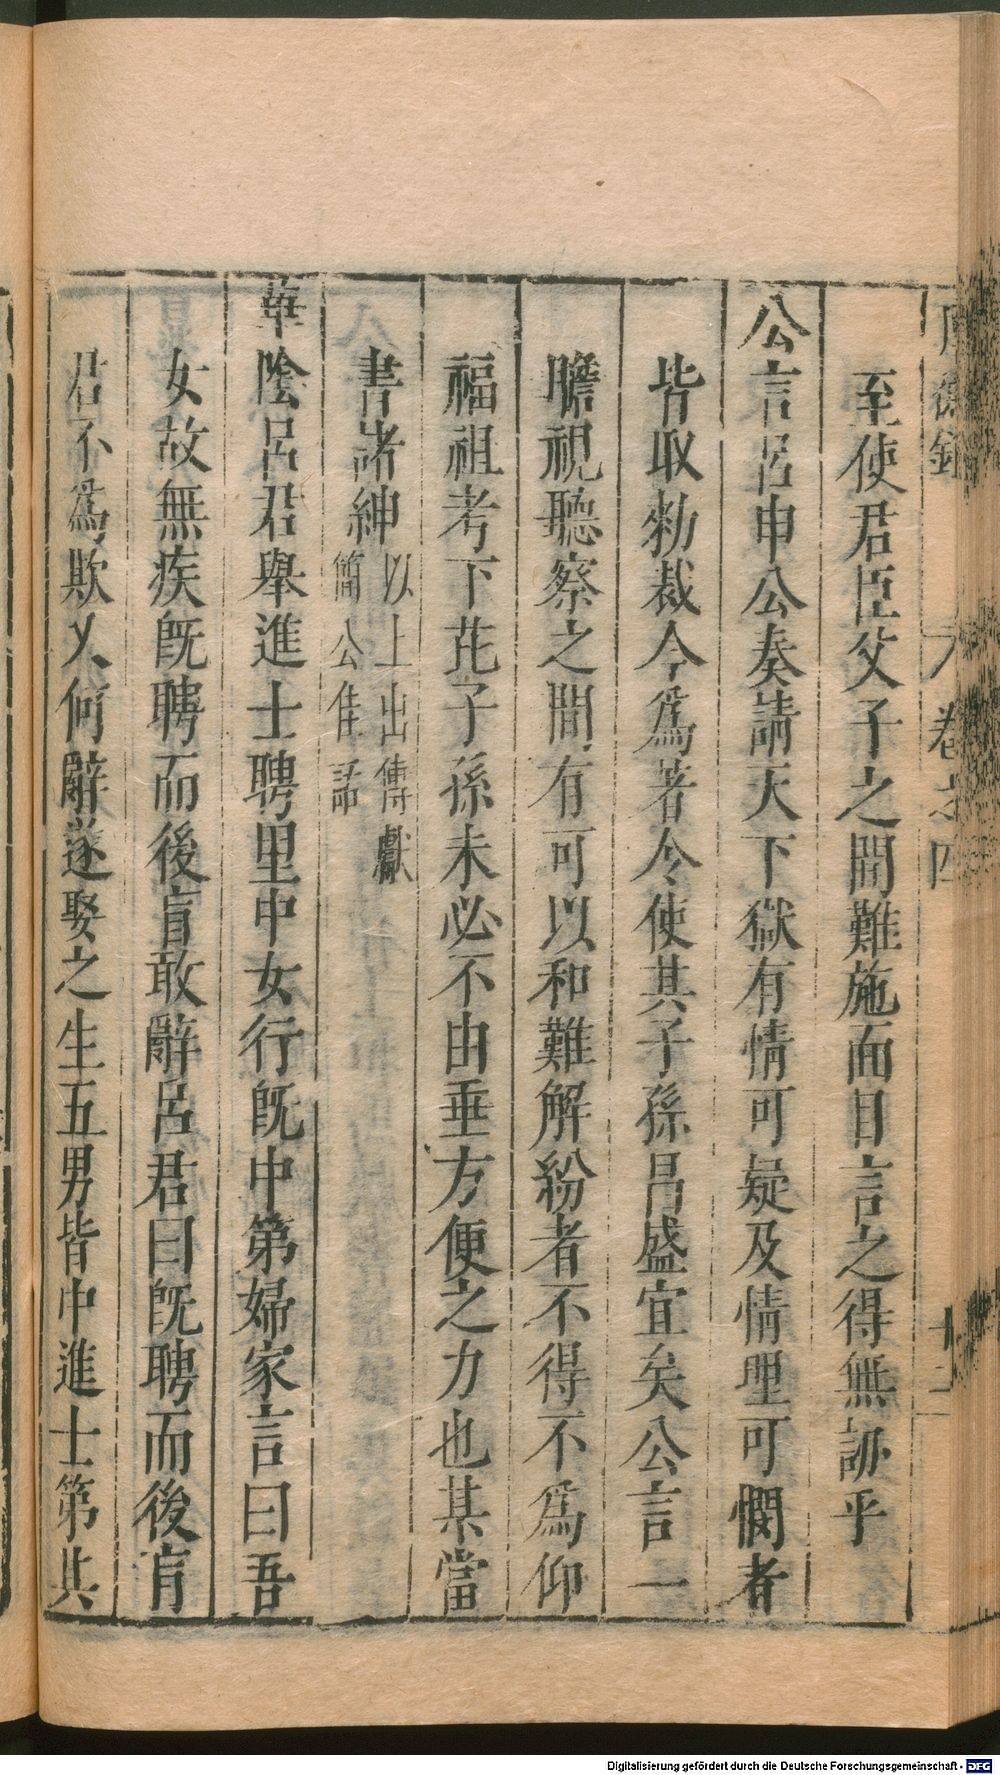 卷之四
至使君臣父子之間難施面目言之得無訒乎
公言呂申公奏請天下獄有情可疑及情理可憫者
皆取勑裁今為著令使其子孫昌盛宜矣公言一
瞻視聽察之間有可以和難解紛者不得不為仰
福祖考下芘子孫未必不由垂方便之力也某當
書諸紳以上出傅獻
簡公佳話
華陰呂君舉進士聘里中女行既中第婦家言曰吾
女故無疾既聘而後盲敢辭呂君曰既聘而後盲
君不為欺又何辭遂娶之生五男皆中進士第其
Digitalisierung gefördert durch die Deutsche Forschungsgemeinschaft - DFG